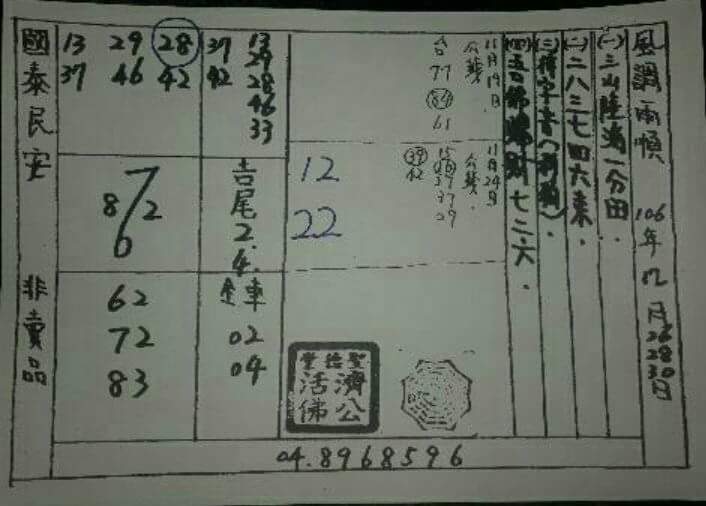 風調雨順 106年12月26 28 30日
(一)三山陸海一分田.
(二)二八三七四六来.
(三)
(四)吾佛賜財七二六.
11月19日
公獎
台 77
84
61
11月24日
公獎
15
16
37
37
09
39
42
12
22
聖德堂
濟公
活佛
13
29
28
46
33
37
42
吉尾2.4.
坐車
02
04
13 29 28
37 46 42
7
8 2
6
62
72
83
國泰民安 非賣品
04.8968596